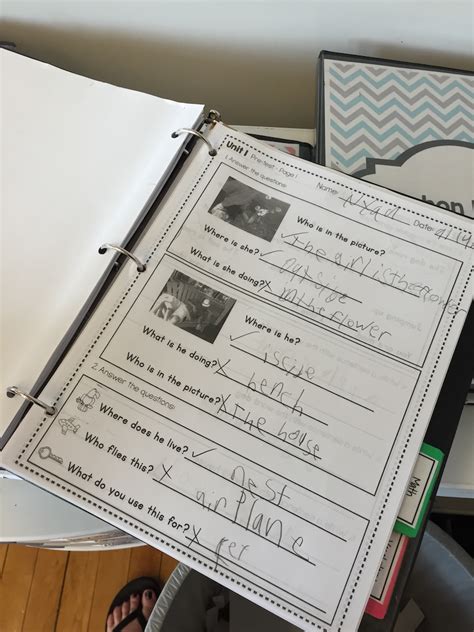 Unit 1 Pre-test - Page 1 Name: Nyad Date:
1. Answer the questions:
Who is in the picture?
✓ The girl is the flower
Where is she? ✓ outside
What is she doing? X in the flower
Where is he?
✓ iscide
What is he doing? X bench
Who is in the picture? X The house
2. Answer the questions:
Where does he live? ✓ nest
Who flies this? X airplane
What do you use this for? X
Math